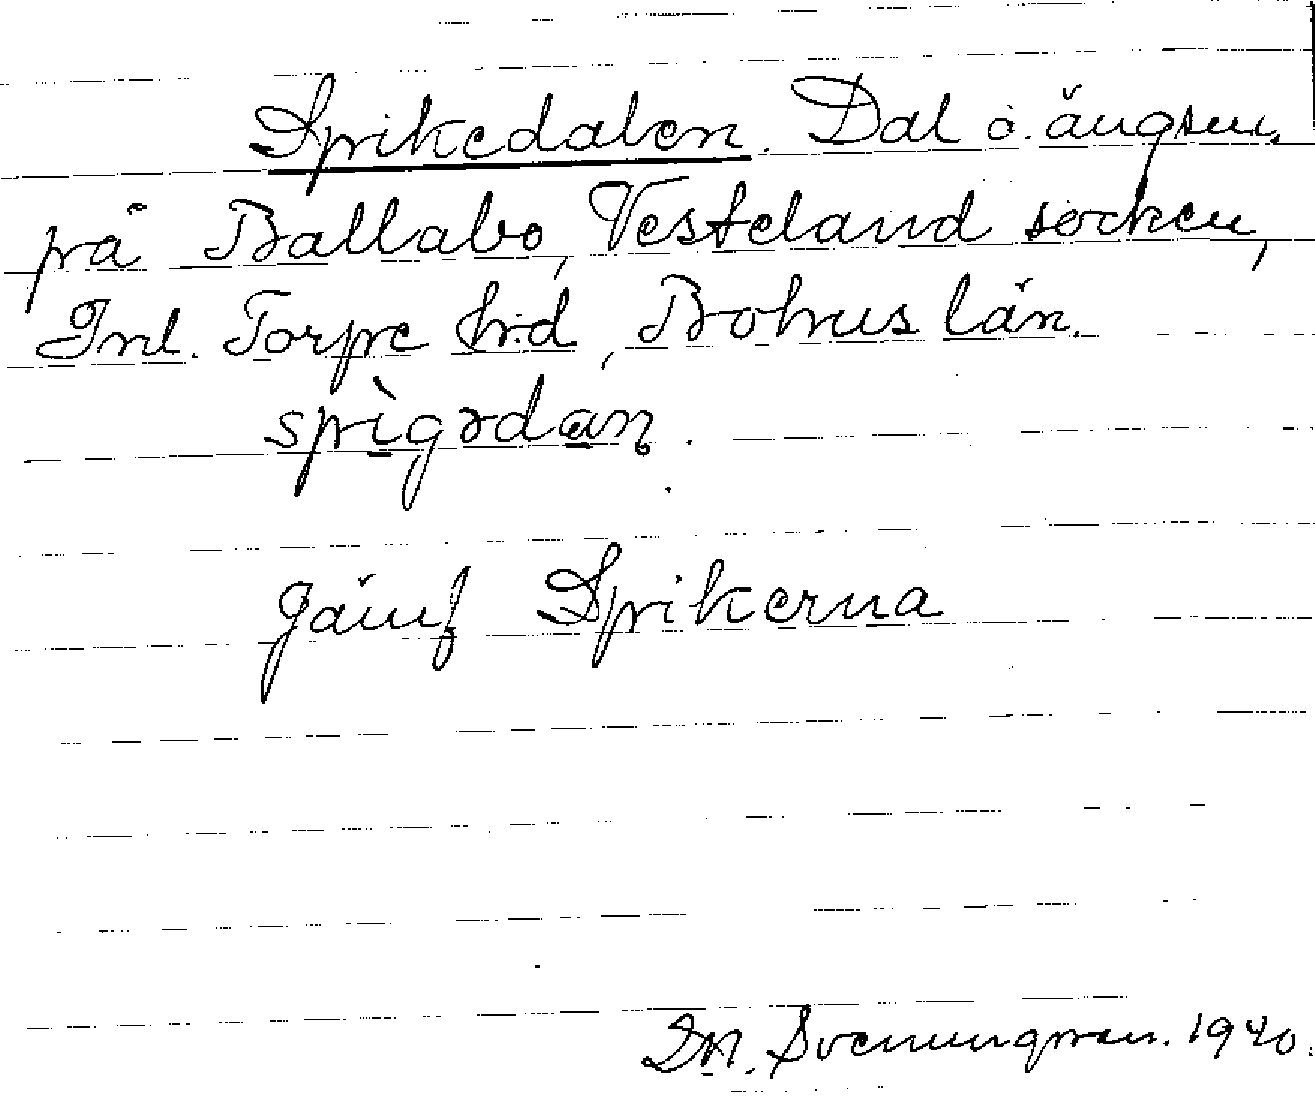 Spikedalen. Dal o. ängsm.
på Ballabo, Vesteland socken,
Inl. Torpe h:d, Bohus län.
spìgədan.
Jämf Spikerna
Sm. Svenungsson. 1920.